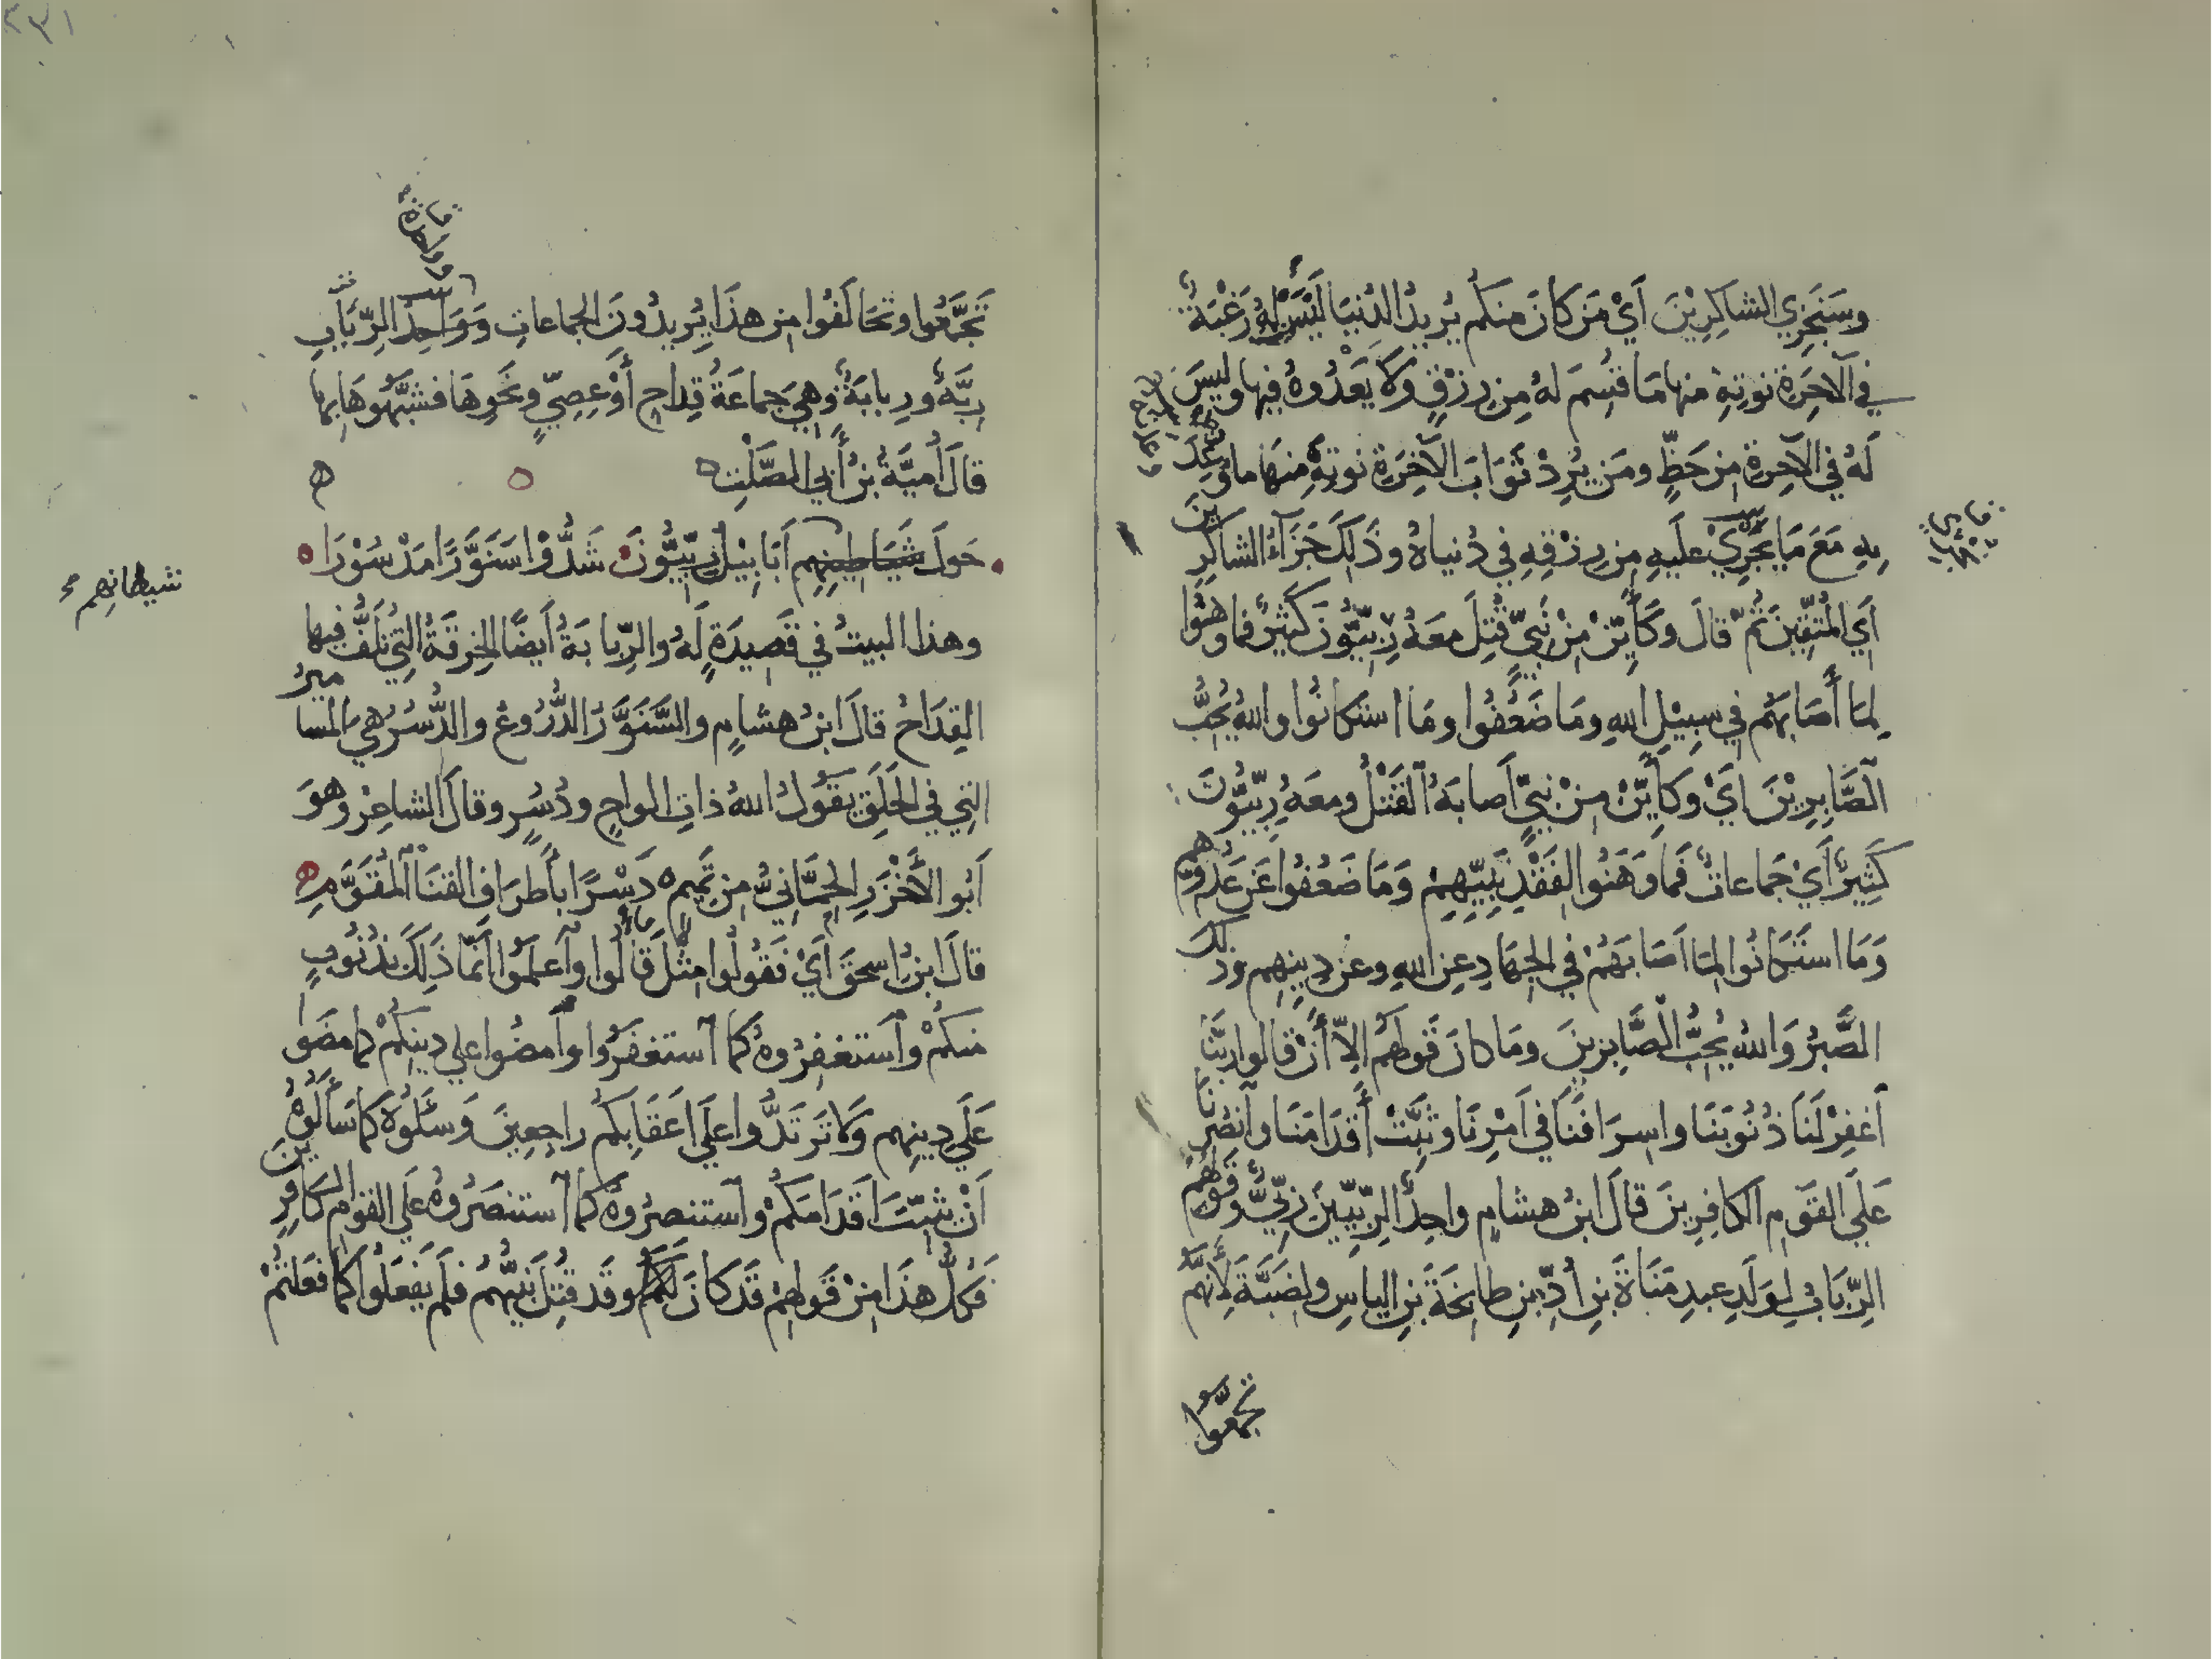 وسَنَجزي الشاكِرِيْنَ أيْ مَن كانَ منكم يُريدُ الدُنيَا لَيْسَتْ لهُ رَغْبَةٌ
في الآخِرَةِ نوتِهِ منها مَا قُسِمَ لهُ مِن رِزْقٍ ولا يَعْدُوهُ فيها وليسَ
لَهُ في الآخِرةِ مِن حَظٍّ ومَن يُرِدْ ثَوَابَ الآخِرَةِ نوتِهِ مِنهَا ما وُعِدَ
بِهِ مَعَ مَا يُجْرِيْ علَيهِ مِن رِزْقِهِ في دُنياهُ وذَلِكَ جَزَآءُ الشاكِرِينَ
أيِ المُتّقِينَ ثُمّ قالَ وكَأيِّنْ مِنْ نَبيٍّ قُتِلَ معَهُ رِبِّيُّونَ كَثيرٌ فما وَهَنُوا
لِمَا أصَابَهُم في سبِيْلِ اللهِ ومَا ضَعُفُوا ومَا استكانُوا واللهُ يُحِبُّ
الصَّابِرِيْنَ أيْ وكَأيِّنْ مِنْ نبيٍّ أصابَهُ القَتْلُ ومعَهُ رِبِّيُّونَ
كَثِيرٌ أيْ جَماعاتٌ فَمَا وَهَنُوا لفَقْدِ نَبِيِّهِمْ وَمَا ضَعُفُوا عَن عَدُوِّهِم
وَمَا استَكانُوا لِمَا أصَابَهُمْ في الجِهَادِ عنِ اللهِ وعن دِينِهِم وذلكَ
الصَّبْرُ وَاللهُ يُحِبُّ الصَّابِرينَ ومَا كانَ قَولَهُم إلاّ أنْ قالوا ربَّنَا
اغفِرْ لَنَا ذُنُوبَنَا وإسرَافَنَا في أمْرِنَا وثَبِّتْ أقدَامَنَا وانصُرنَا
عَلَي القَومِ الكافِرِينَ قالَ ابنُ هشامٍ واحِدُ الرِّبِّيِّينَ رِبِّيٌّ وقَولُهُم
الرِّبَابُ لِوَلَدِ عبدِ مَنَاةَ بنِ أُدِّ بنِ طابِخَةَ بنِ الياسِ ولِضَبَّةَ لأنَّهُم
تجمّعوا
٢٣١
تَجَمَّعُوا وتَحَالَفُوا مِن هذَا يُرِيدُونَ الجماعاتِ وَوَاحِدُ الرِّبَابِ
رِبَّةٌ ورِبابَةٌ وهيَ جماعَةُ قِداحٍ أوْ عِصِيٍّ ونَحوِهَا فشبَّهُوهَا بِهَا
قالَ أُمَيَّةُ بنُ أبي الصَّلْتِ
حَولَ شَيَاطِينِهِم أبَابِيْلُ رِبِّيُّونَ شَدُّوْا سَنَوَّرًا مَدْسُوْرَا
شيطانِهِم
وهذا البيتُ في قَصِيدَةٍ لَهُ والرِّبابَةُ أيضًا الخِرقَةُ التِي تُلَفُّ فيها
القِدَاحُ قالَ ابنُ هشامٍ والسَّنَوَّرُ الدُّرُوعُ والدُّسُرُ هيَ المساميرُ
التِي في الحَلَقِ يَقُولُ اللهُ ذاتِ الواحٍ ودُسُرٍ وقالَ الشاعِرُ وهوَ
أبُو الأخْزَرِ الحِمَّانيُّ مِن تَمِيمٍ دَسْرًا بأطرَافِ القنَا المُقَوَّمِ
قالَ ابنُ إسحقَ أيْ فَقُولُوا مثْلَ مَا قالُوا واعلَمُوا أنّمَا ذَلِكَ بذُنُوبٍ
منكُمْ واستغفِرُوهُ كمَا استغفَرُوا وامضُوا علي دِينِكُمْ كما مضَوا
عَلَي دِينِهِم وَلا تَرتَدُّوا علَي أعقَابِكُم راجِعِينَ وَسَلُوهُ كمَا سَألُوهُ
أنْ يثبِّتَ أقدَامَكُمْ واستنصِرُوهُ كمَا استنصَرُوهُ علَي القومِ الكافِرِينَ
فَكُلُّ هذَا مِنْ قَولِهِمْ قَدْ كانَ وقَد قُتِلَ نبيُّهُم فلَم يَفعَلُوا كمَا فعَلتُمْ